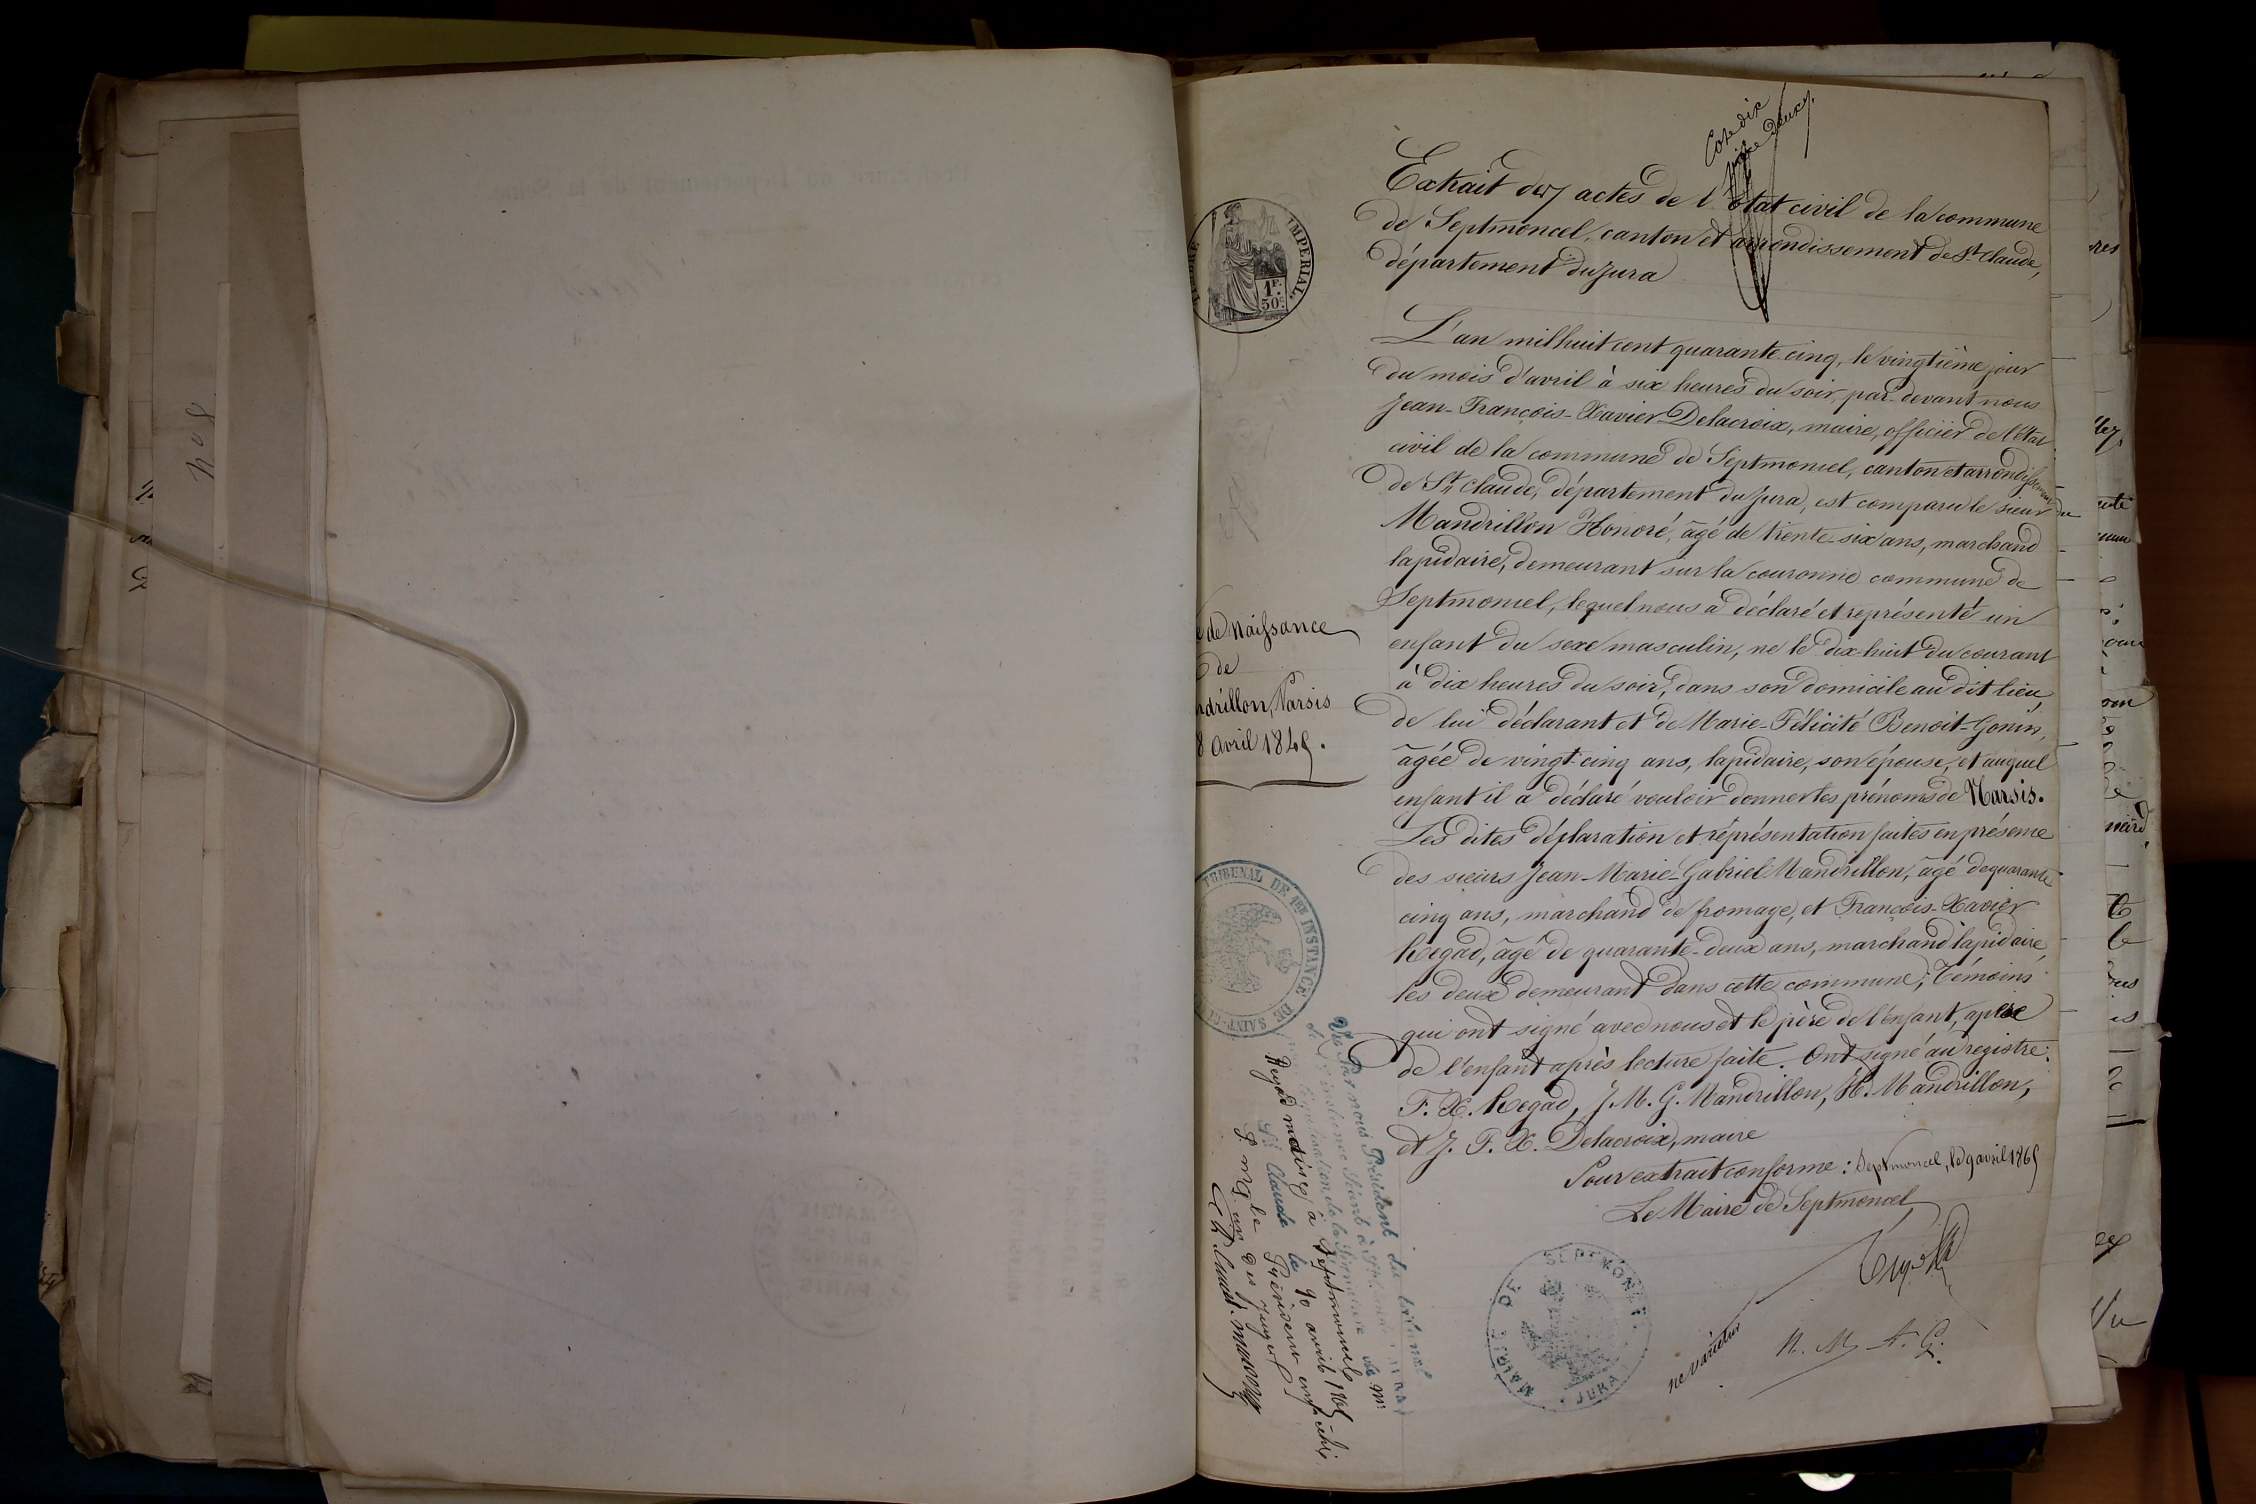 Cote dix
pièce deux
Extrait des actes de l'état civil de la commune
de Septmoncel, canton et arrondissement de St Claude,
département du Jura
TIMBRE IMPERIAL
1F.
50c.
L'an mil huit cent quarante cinq, le vingtième jour
du mois d'avril à six heures du soir, par devant nous
Jean-François-Xavier Delacroix, maire, officier de l'état
civil de la commune de Septmoncel, canton et arrondissement
de St Claude, département du Jura, est comparu le sieur
Mandrillon Honoré, âgé de trente-six ans, marchand
lapidaire, demeurant sur la couronne commune de
Septmoncel, lequel nous a déclaré et représenté un
enfant du sexe masculin, ne le dix-huit du courant
à dix heures du soir, dans son domicile au dit lieu
de lui déclarant et de Marie-Félicité Benoit-Gonin,
âgée de vingt-cinq ans, lapidaire, son épouse, et auquel
enfant il a déclaré vouloir donner les prénoms de Narsis.
Les dites déclaration et réprésentation faites en présence
des sieurs Jean-Marie-Gabriel Mandrillon, âgé de quarante
cinq ans, marchand de fromage, et François-Xavier
Regad, âgé de quarante-deux ans, marchand lapidaire,
les deux demeurant dans cette commune; Témoins
qui ont signé avec nous et le père de l'enfant, apres
de l'enfant après lecture faite. Ont signé au registre:
F. X. Regad, J. M. G. Mandrillon, H. Mandrillon,
et J. F. X. Delacroix, maire
Pour extrait conforme: Septmoncel, le 9 avril 1865
Le Maire de Septmoncel
ne varietur
N. M. A. G.
MAIRIE DE SEPTMONCEL
JURA
de Naissance
de
drillon, Narsis
8 avril 1845.
TRIBUNAL DE 1ERE INSTANCE DE SAINT-CL
Vu Par nous Président du tribunal
de la Signature de Mr
Regad maire à Septmoncel
St Claude le 10 avril 1865
P. le Président empêché
L'un des juges
408